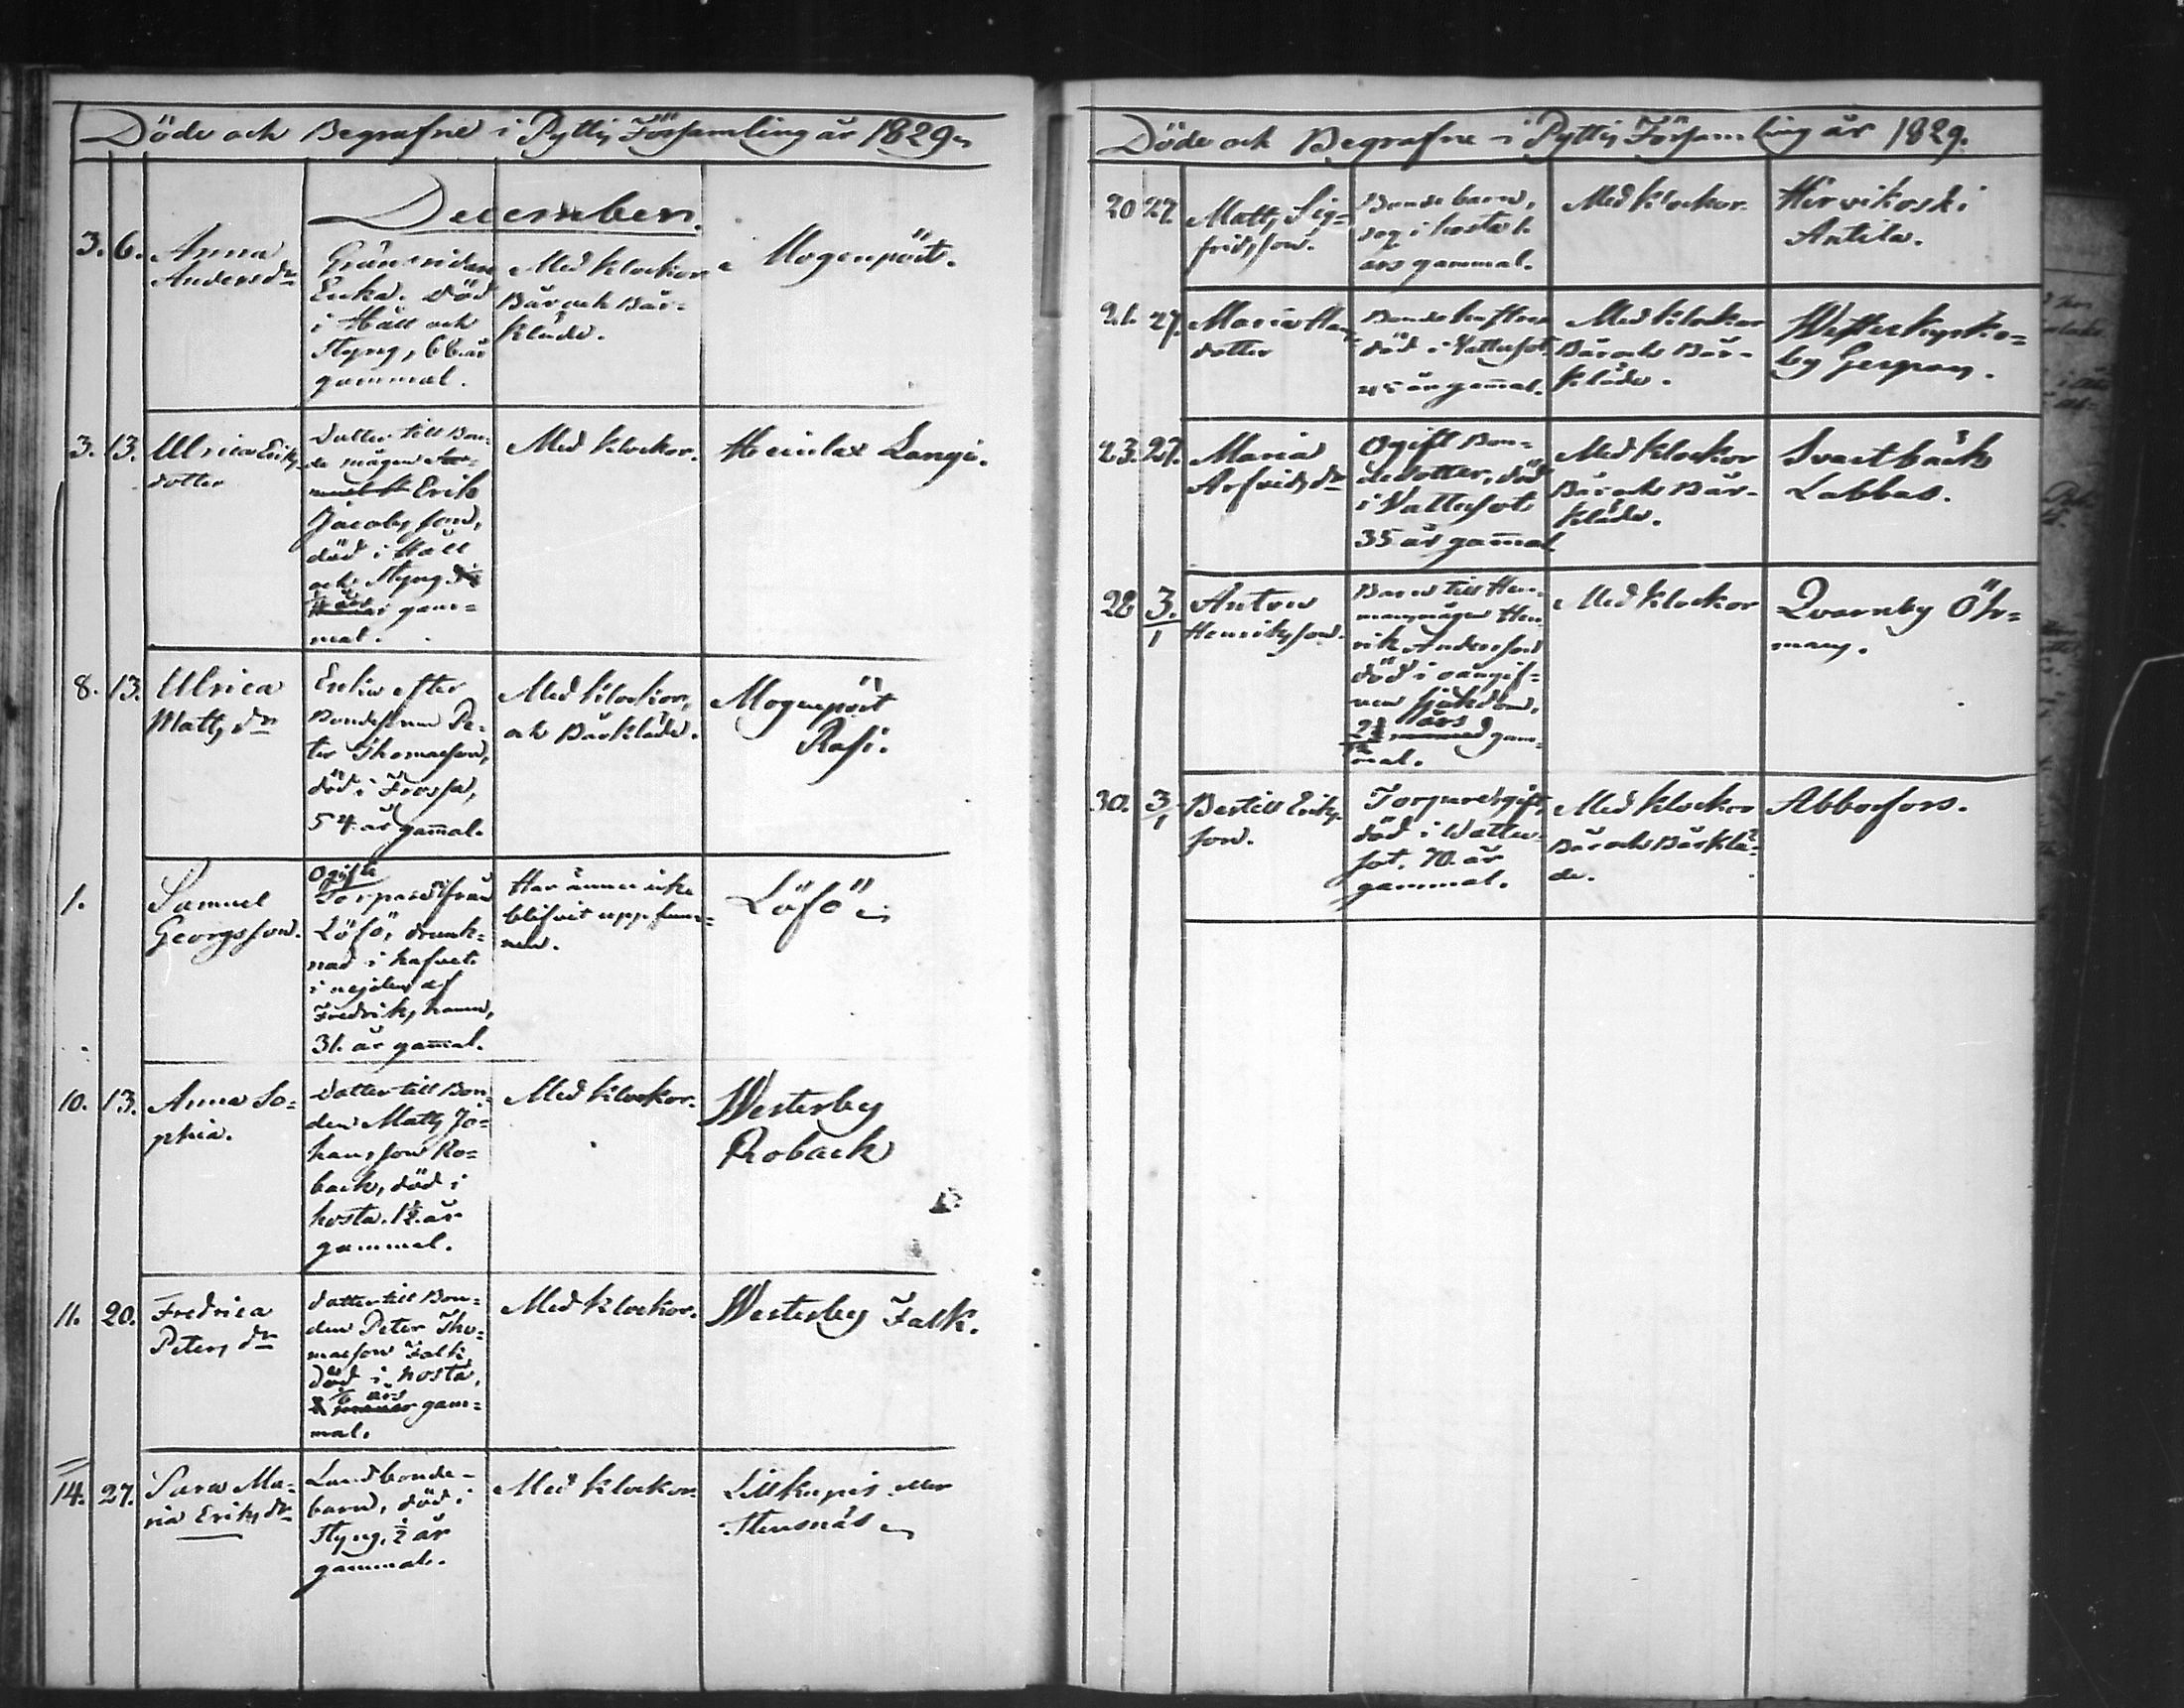 Döde och Begrafne i Pyttis Församling år 1829
December.
3. 6. Anna
Andersdr
Gränsridare
Enka. Död
i Håll och
Styng, 66. år
gammal.
Med klockor
Bår och Bår-
kläde.
Mogenpört.
3. 13. Ulrica Eriks
dotter
Dotter till Bon-
de mågen
Erik
Jacobsson,
död i Håll
och Styng
gam=
mal.
Med klockor.
Heinlax Langi.
8. 13. Ulrica
Mattsdr
Enka efter
Bondeson Pe-
ter Thomasson,
död i Frossa,
54. år gamal.
Med klockor,
och Bårkläde.
Mogenpört
Rasi.
1. Samuel
Georgsson.
Ogifte
Torparen från
Löfö, drunk-
nad i hafvet
i nejden af
Fredrikshamn,
31. år gamal.
Har ännu icke
blifvit uppfun-
nen.
Löfö
10. 13. Anna So=
phia.
Dotter till Bon-
den Matts Jo=
hansson Ro=
back, död i
hosta. 1½. år
gammal.
Med klockor.
Westerby
Roback
11. 20. Fredrica
Petersdr
Dotter till Bon=
den Peter Tho=
masson Falk
död i hosta,
års
gam=
mal.
Med klockor.
Westerby Falk.
14. 27. Sara Ma=
ria Eriksdr
Landbonde-
barn, död i
Styng, ½ år
gammal.
Med klockor.
Lillkupis eller
Stensnäs
Döde och Begrafne i Pyttis Församling år 1829.
20 27. Matts Sig=
fridsson.
Bondebarn,
dog i hosta 1.
års gammal.
Med klockor.
Hirvikoski
Antila.
21. 27. Maria
dotter
Bondehustru
död i Vattusot,
45 år gamal.
Med klockor
Bår och Bår-
kläde.
Westerkyrko=
by
23. 27. Maria
Arfvidsdr
Ogift Bon=
dedotter, död
i Vattusot
35 år gamal
Med klockor
Bår och Bår-
kläde.
Svartbäck
Labbas.
28 3/1 Anton
Henriksson.
Barn till Hem-
mansmågen Hen-
rik Andersson
död i oangif=
ven sjukdom,
års
gam=
mal.
Med klockor
Qvarnby Öh=
mans.
30. 3/1 Bertill Eriks
son.
Torpare, gift,
död i Wattu-
sot. 70. år
gammal.
Med klockor
Bår och Bårklä=
de.
Abborfors.